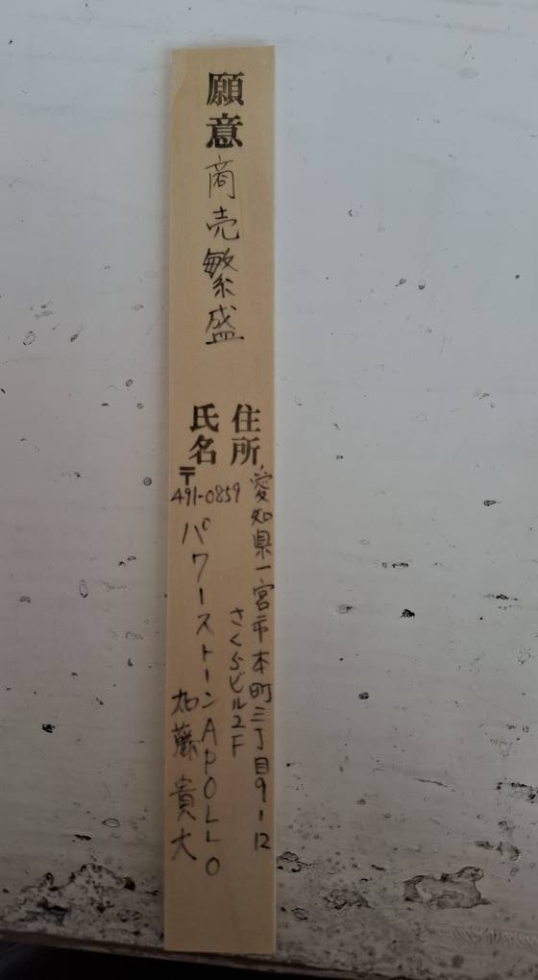 願意 商売繁盛
住所
愛知県一宮市本町三丁目9-12
さくらビル2F
氏名
〒491-0859
パワーストーンAPOLLO
加藤貴大